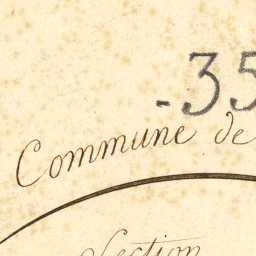 -35
Commune de
Section